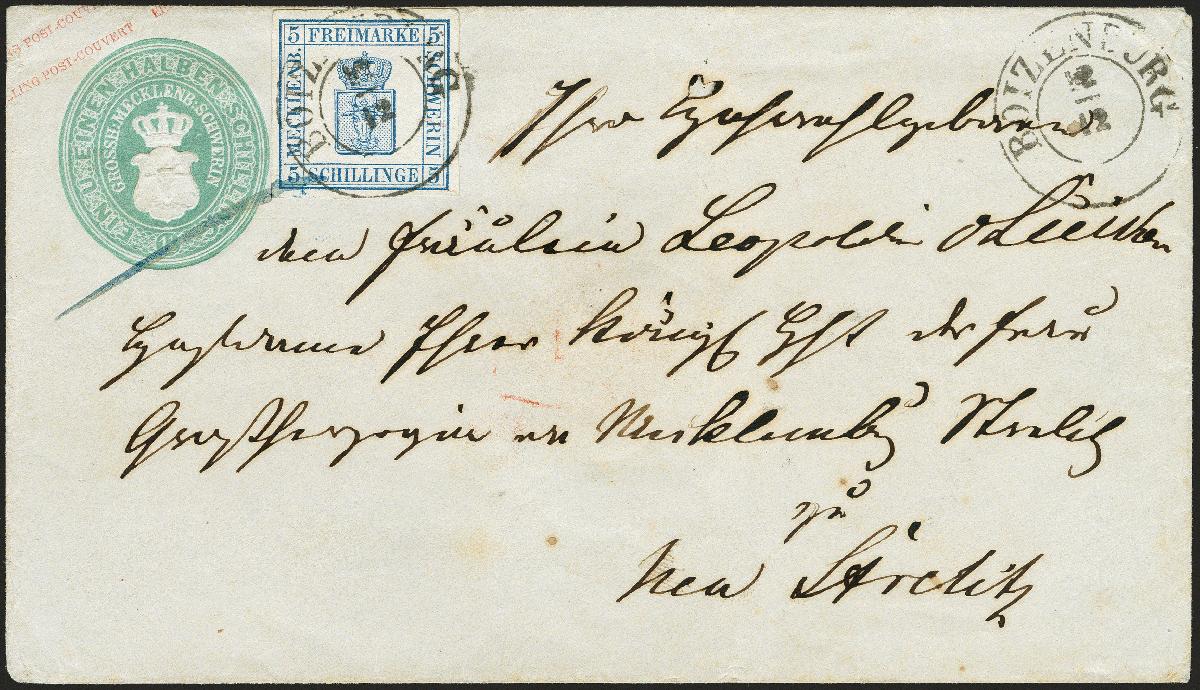 LING POST-COUVERT
EIN U. EINEN HALBEN SCHILLING
GROSSH. MECKLENB. SCHWERIN
5 FREIMARKE 5
MECKLENB.
SCHWERIN
5 SCHILLINGE 5
BOIZENBURG
5
12
BOIZENBURG
5
12
Ihro Hochwohlgeboren
dem Fräulein Leopoldine
Ihrer Königl der Frau
Großherzogin von Mecklenburg Strelitz
zu
Neu Strelitz